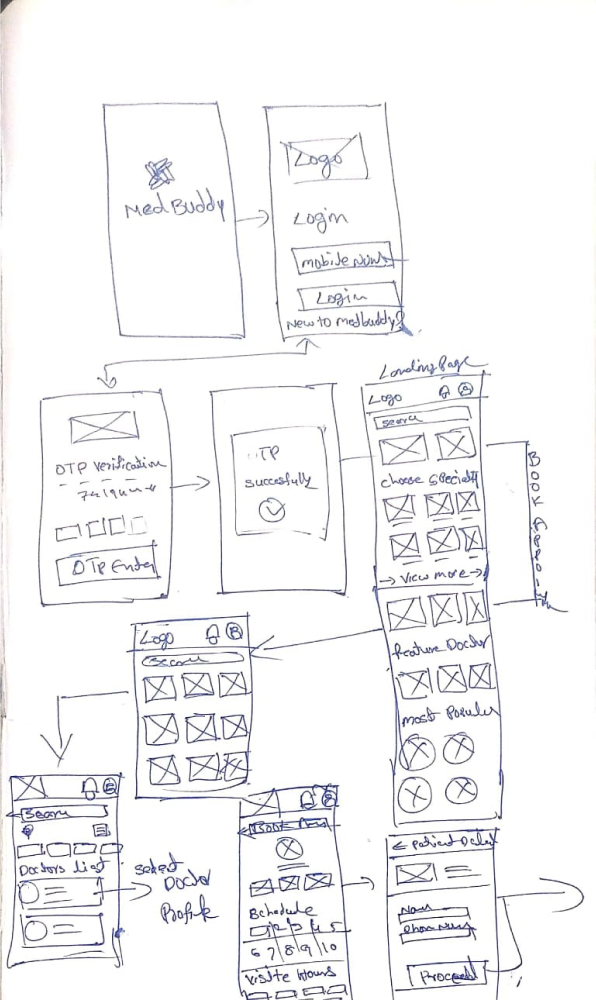 MedBuddy
Logo
Login
mobile Num
Login
New to medbuddy?
OTP Verification
OTP Enter
TP
succesfully
Landing Page
Logo
search
choose Specialit
→ View more →
Feature Doctor
most Populer
Logo
Search
Search
Doctors List
select
Doctor
Profile
Schedule
1 2 3 4 5
6 7 8 9 10
Visite Hours
← Patient Detail
Name
Phone Number
Proceed